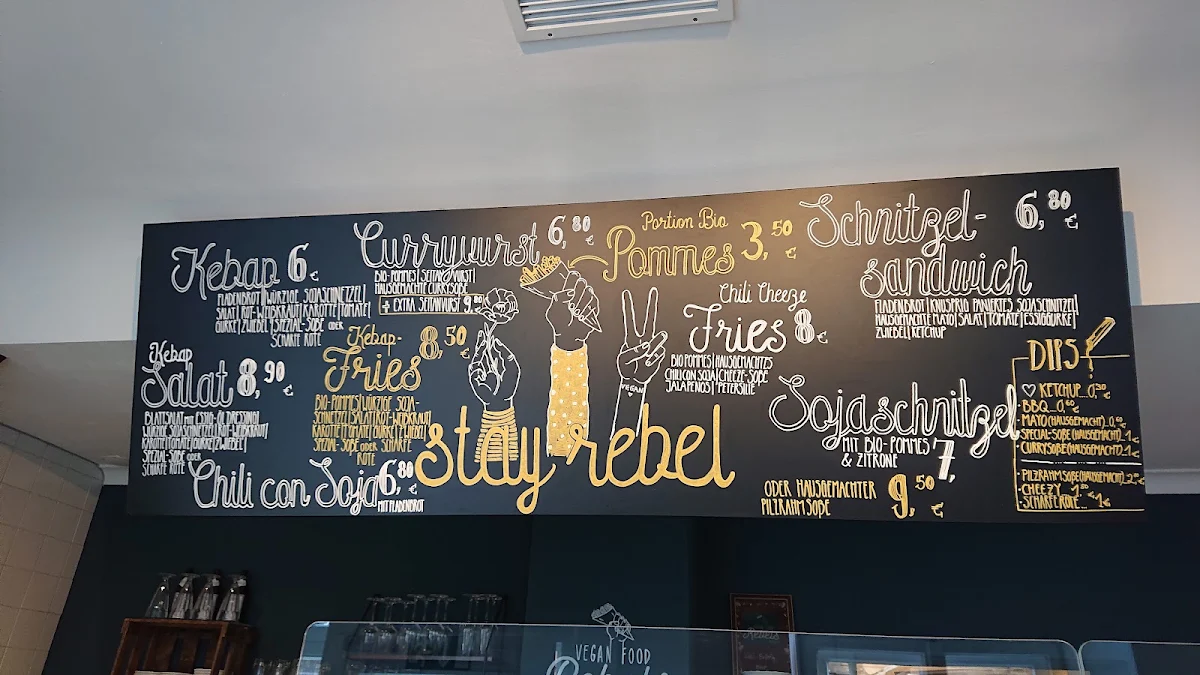 Kebap 6 €
FLADENBROT|WÜRZIGE SOJASCHNETZEL|
SALAT|ROT-WEIßKRAUT|KAROTTE|TOMATE|
GURKE|ZWIEBEL|SPEZIAL-SOßE ODER
SCHARFE ROTE
Currywurst 6,80 €
BIO-POMMES|SEITANWURST|
HAUSGEMACHTE CURRYSOßE
+ EXTRA SEITANWURST 9,80
Portion Bio
Pommes 3,50 €
Schnitzel-
sandwich 6,80 €
FLADENBROT|KNUSPRIG PANIERTES SOJASCHNITZEL|
HAUSGEMACHTE MAYO|SALAT|TOMATE|ESSIGGURKE|
ZWIEBEL|KETCHUP
Kebap
Salat 8,90 €
BLATTSALAT MIT ESSIG-ÖL DRESSING|
WÜRZIGE SOJASCHNETZEL|ROT-WEIßKRAUT|
KAROTTE|TOMATE|GURKE|ZWIEBEL|
SPEZIAL-SOßE ODER
SCHARFE ROTE
Kebap-
Fries 8,50 €
BIO-POMMES|WÜRZIGE SOJA-
SCHNETZEL|SALAT|ROT-WEIßKRAUT|
KAROTTE|TOMATE|GURKE|ZWIEBEL|
SPEZIAL-SOßE ODER SCHARFE
ROTE
Chili Cheeze
Fries 8 €
BIO POMMES|HAUSGEMACHTES
CHILI CON SOJA|CHEEZE-SOßE
JALAPENOS|PETERSILIE
Chili con Soja 6,80 €
MIT FLADENBROT
VEGAN
stay rebel
Sojaschnitzel
MIT BIO-POMMES
& ZITRONE 7,
ODER HAUSGEMACHTER
PILZRAHMSOßE 9,50 €
DIPS
KETCHUP...0,30
BBQ...0,60
MAYO(HAUSGEMACHT)..0,60
SPECIAL-SOßE(HAUSGEMACHT)..1€
CURRYSOßE(HAUSGEMACHT)...1€
PILZRAHMSOßE(HAUSGEMACHT)..2,50
CHEEZY 1,50
SCHARFE ROTE... 1€
VEGAN FOOD